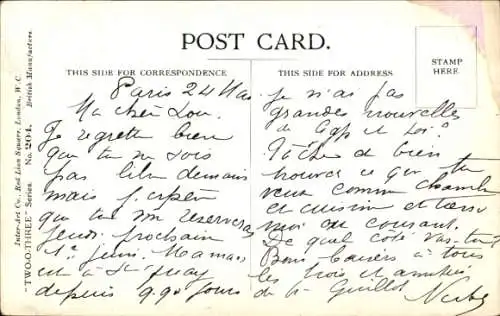 POST CARD.
THIS SIDE FOR CORRESPONDENCE
THIS SIDE FOR ADDRESS
STAMP
HERE
Inter-Art Co., Red Lion Square, London, W.C.
"TWO-O-THREE" Series No. 2014. British Manufacture.
Paris 24 Mai
Ma chère Lou.
Je regrette bien
que tu ne sois
pas libre demain
mais j'espère
que tu me réserveras
Jeudi prochain
1er juin. Maman
est à St Quay
depuis qq jours
Je n'ai pas
grandes nouvelles
de et
Tâche de bien
trouver ce que tu
veux comme chambre
et cuisine et
moi au courant.
De quel côté vas-tu?
Bons baisers à tous
les trois et amitiés
de Guillot